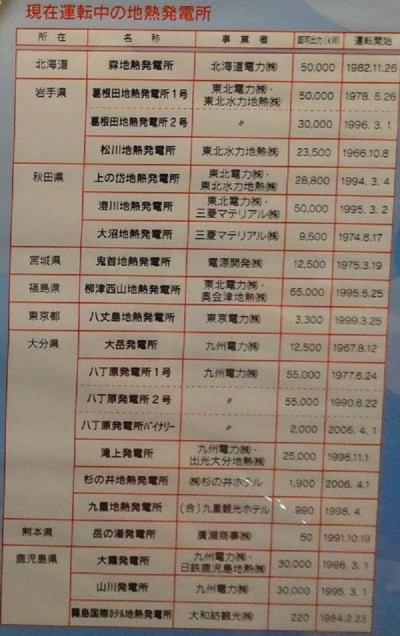 現在運転中の地熱発電所
所在 名称 事業者 認可出力(kW) 運転開始
北海道 森地熱発電所 北海道電力㈱ 50,000 1982.11.26
岩手県 葛根田地熱発電所1号 東北電力㈱・ 50,000 1978. 5.26
東北水力地熱㈱
葛根田地熱発電所2号 〃 30,000 1996. 3. 1
松川地熱発電所 東北水力地熱㈱ 23,500 1966.10.8
秋田県 上の岱地熱発電所 東北電力㈱・ 28,800 1994. 3. 4
東北水力地熱㈱
澄川地熱発電所 東北電力㈱・ 50,000 1995. 3. 2
三菱マテリアル㈱
大沼地熱発電所 三菱マテリアル㈱ 9,500 1974.6.17
宮城県 鬼首地熱発電所 電源開発㈱ 12,500 1975.3.19
福島県 柳津西山地熱発電所 東北電力㈱・ 65,000 1995.5.25
奥会津地熱㈱
東京都 八丈島地熱発電所 東京電力㈱ 3,300 1999.3.25
大分県 大岳発電所 九州電力㈱ 12,500 1967.8.12
八丁原発電所1号 九州電力㈱ 55,000 1977.6.24
八丁原発電所2号 〃 55,000 1990.6.22
八丁原発電所バイナリー 〃 2,000 2006. 4. 1
滝上発電所 九州電力㈱・ 25,000 1996.11.1
出光大分地熱㈱
杉の井地熱発電所 ㈱杉の井ホテル 1,900 2006.4.1
九重地熱発電所 (合)九重観光ホテル 990 1998. 4
熊本県 岳の湯発電所 廣瀬商事㈱ 50 1991.10.19
鹿児島県 大霧発電所 九州電力㈱・ 30,000 1996. 3. 1
日鉄鹿児島地熱㈱
山川発電所 九州電力㈱ 30,000 1995. 3. 1
霧島国際ホテル地熱発電所 大和紡観光㈱ 220 1984.2.23